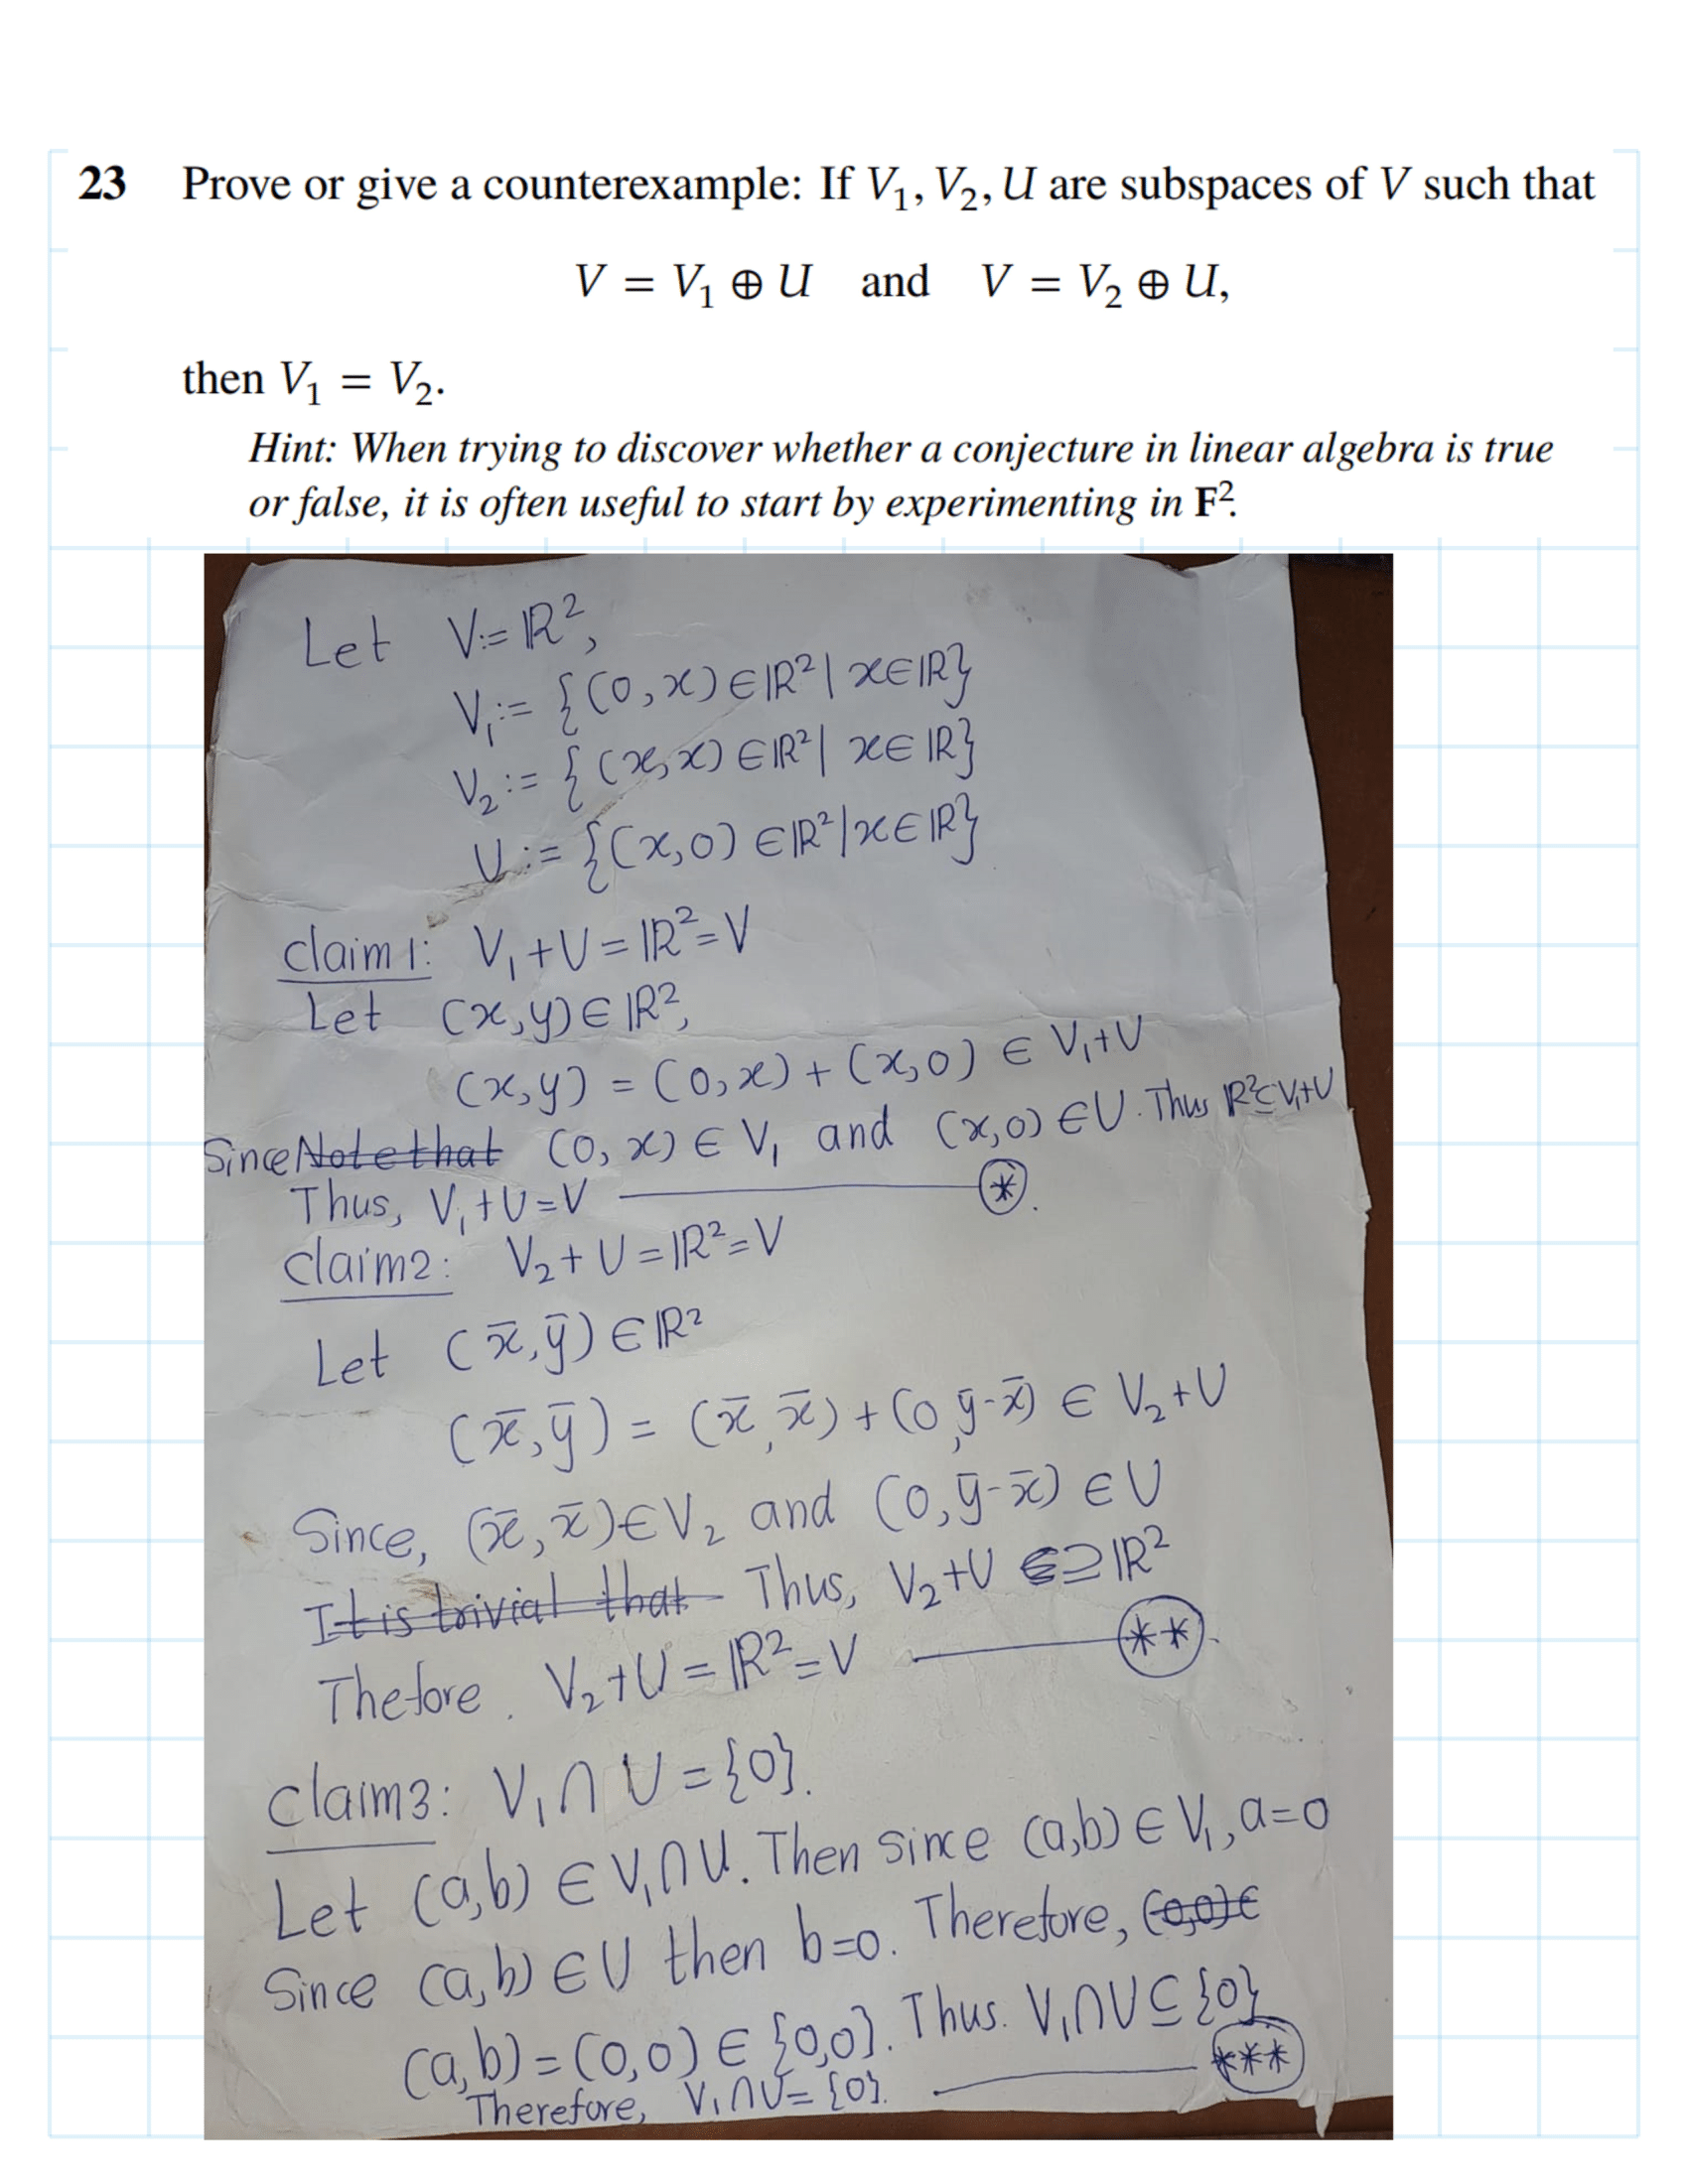 23 Prove or give a counterexample: If V₁, V₂, U are subspaces of V such that
V = V₁ ⊕ U and V = V₂ ⊕ U,
then V₁ = V₂.
Hint: When trying to discover whether a conjecture in linear algebra is true
or false, it is often useful to start by experimenting in F².
Let V:= ℝ²,
V₁:= {(0,x)∈ℝ² | x∈ℝ}
V₂:= {(x,x)∈ℝ² | x∈ℝ}
U:= {(x,0)∈ℝ² | x∈ℝ}
claim 1: V₁+U=ℝ²=V
Let (x,y)∈ℝ²,
(x,y) = (0,x)+(x,0) ∈ V₁+U
Since Note that (0,x)∈V₁ and (x,0)∈U. Thus ℝ²⊆V₁+U
Thus, V₁+U=V ⊛.
claim2: V₂+U=ℝ²=V
Let (x̄,ȳ)∈ℝ²
(x̄,ȳ) = (x̄,x̄)+(0,ȳ-x̄) ∈ V₂+U
Since, (x̄,x̄)∈V₂ and (0,ȳ-x̄)∈U
It is trivial that Thus, V₂+U ⊇ℝ²
Thefore. V₂+U=ℝ²=V (**).
claim3: V₁∩U={0}.
Let (a,b)∈V₁∩U. Then since (a,b)∈V₁, a=0
Since (a,b)∈U then b=0. Therefore, (0,0)∈
(a,b)=(0,0)∈{0,0}. Thus. V₁∩U⊆{0}
Therefore, V₁∩U={0}. (***)